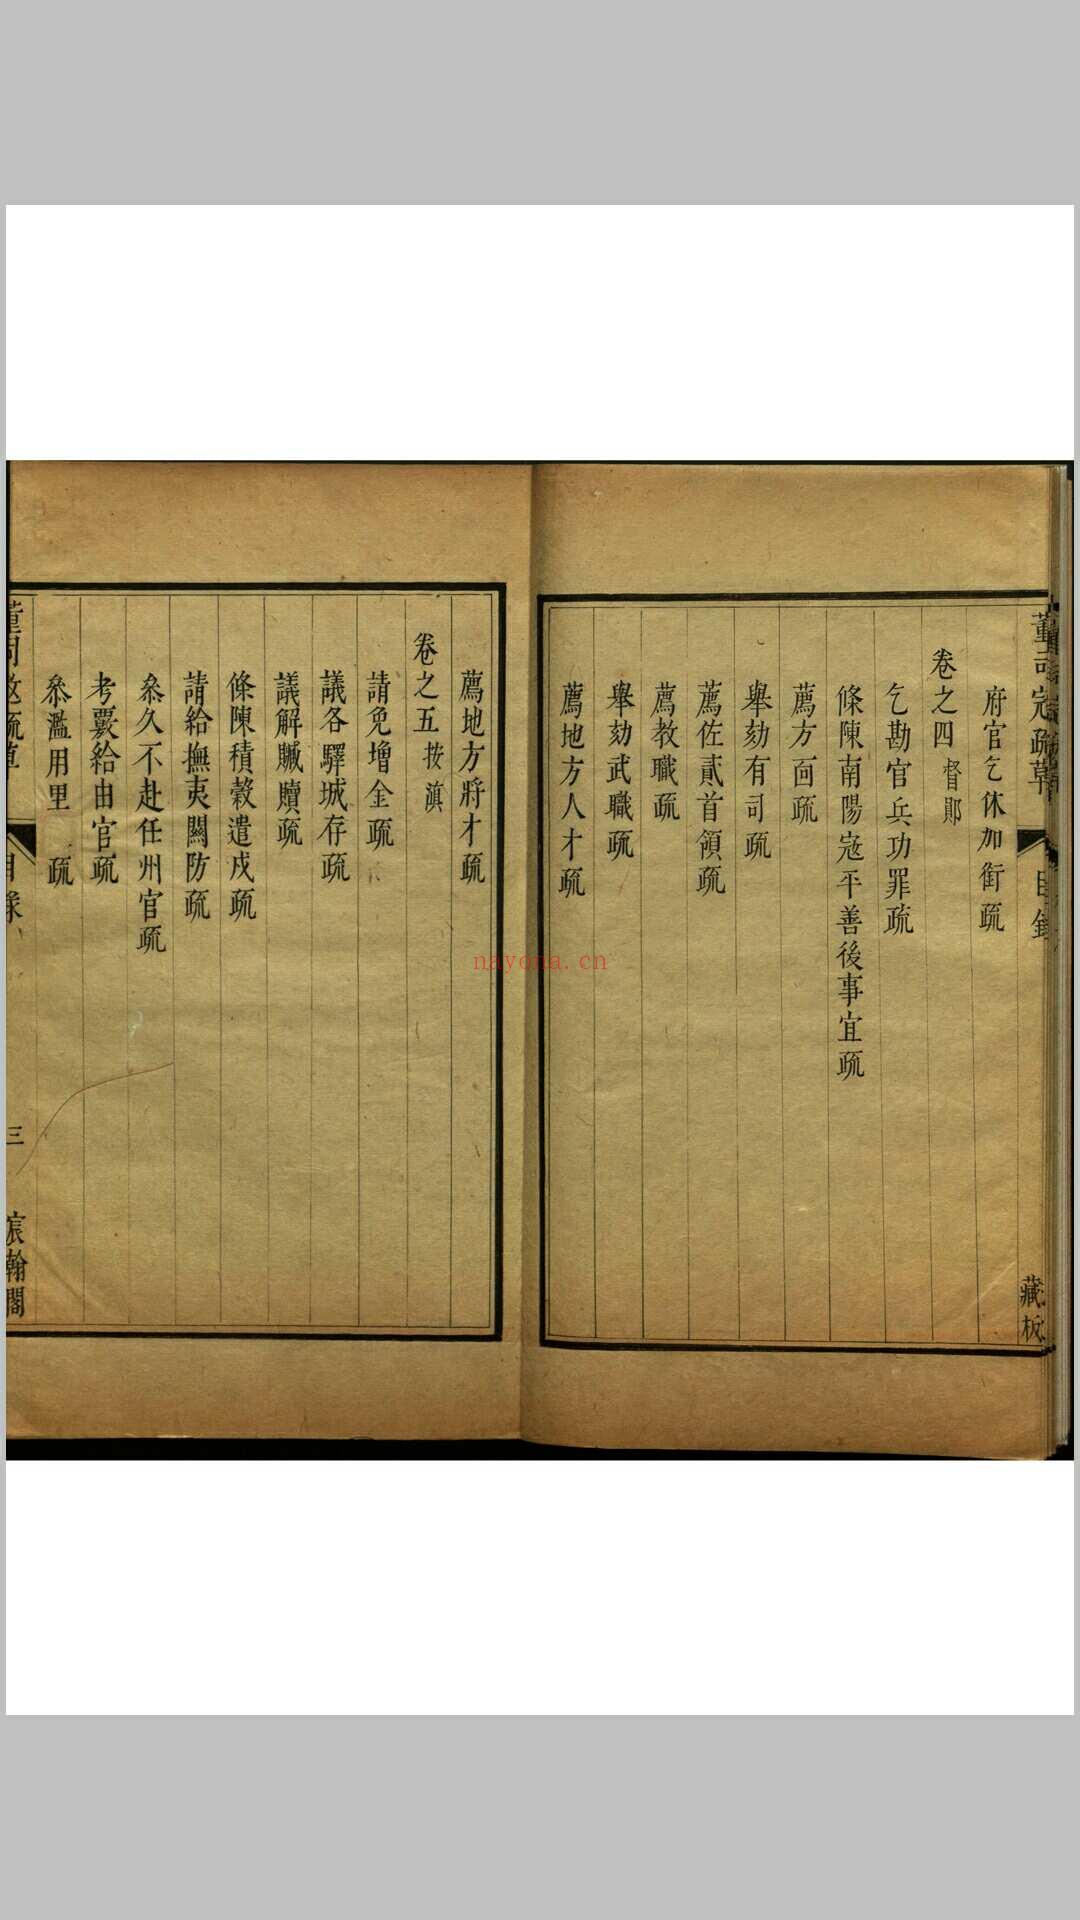 董司寇疏草
目錄
藏板
府官乞休加銜疏
卷之四 督鄖
乞勘官兵功罪疏
條陳南陽寇平善後事宜疏
薦方面疏
舉劾有司疏
薦佐貳首領疏
薦教職疏
舉劾武職疏
薦地方人才疏
薦地方將才疏
卷之五 按滇
請免增金疏
議各驛城存疏
議解贓贖疏
條陳積穀遣戍疏
請給撫夷關防疏
叅久不赴任州官疏
考覈給由官疏
叅濫用里 疏
目錄
三
翰閣
nayona.cn